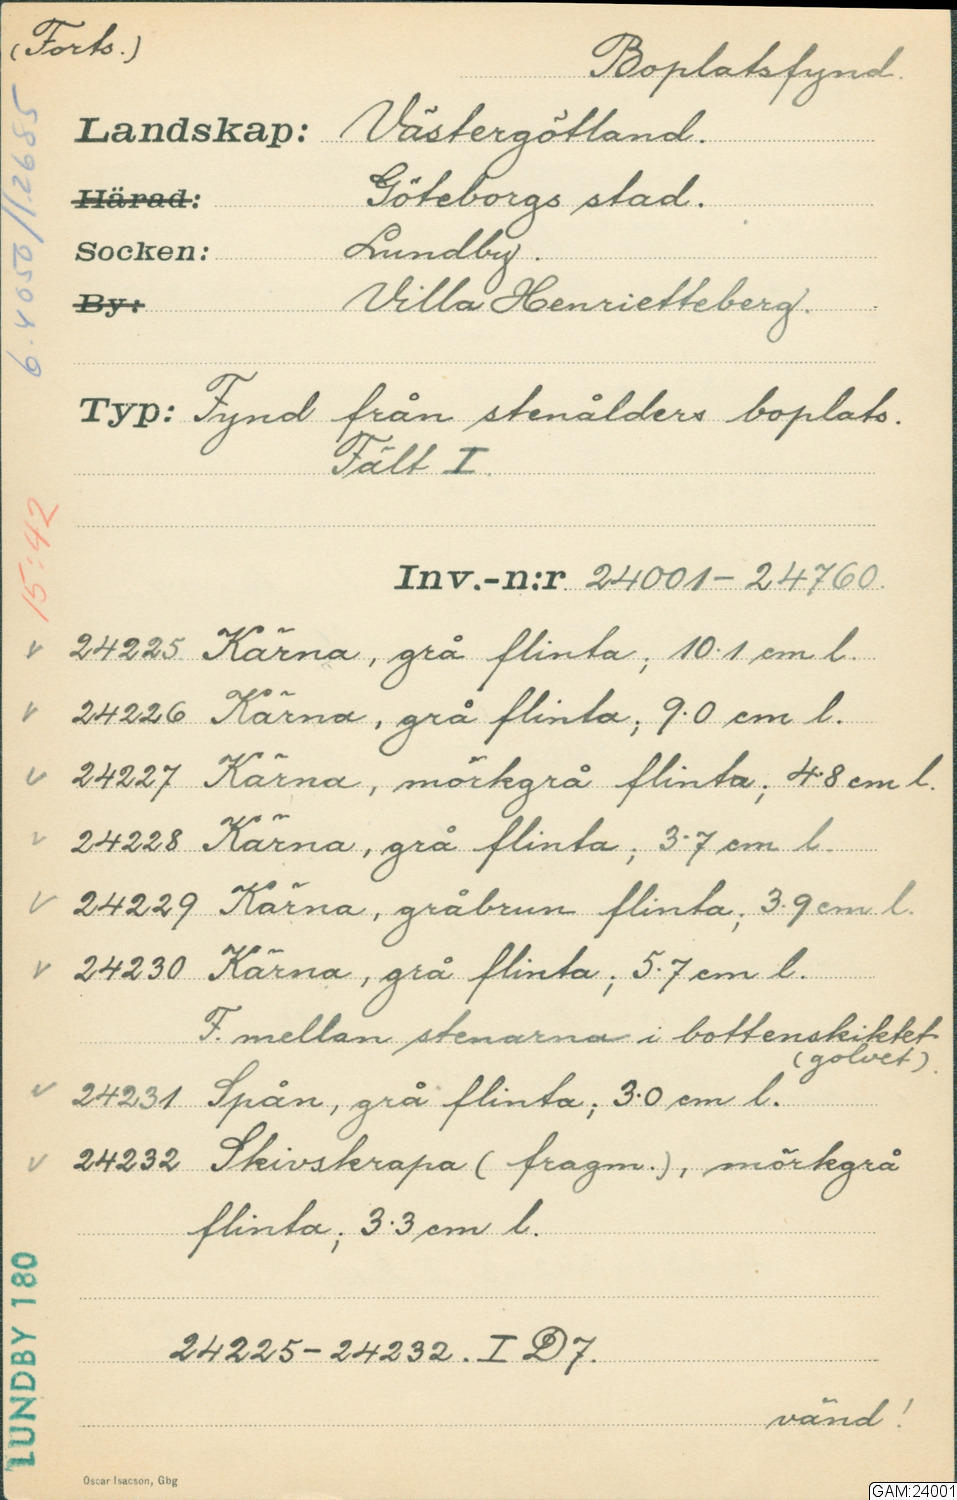 (Forts.)
Boplatsfynd.
Landskap: Västergötland.
Härad: Göteborgs stad.
Socken: Lundby.
By: Villa Henrietteberg.
Typ: Fynd från stenålders boplats.
Fält I.
Inv.-n:r 24001–24760.
v 24225 Kärna, grå flinta; 10.1 cm l.
v 24226 Kärna, grå flinta; 9.0 cm l.
v 24227 Kärna, mörkgrå flinta; 4.8 cm l.
v 24228 Kärna, grå flinta; 3.7 cm l.
v 24229 Kärna, gråbrun flinta; 3.9 cm l.
v 24230 Kärna, grå flinta; 5.7 cm l.
F. mellan stenarna i bottenskiktet
(golvet).
v 24231 Spån, grå flinta; 3.0 cm l.
v 24232 Skivskrapa (fragm.), mörkgrå
flinta; 3.3 cm l.
24225–24232. I D7.
vänd!
Oscar Isacson, Gbg
15:42
LUNDBY 180
GAM:24001